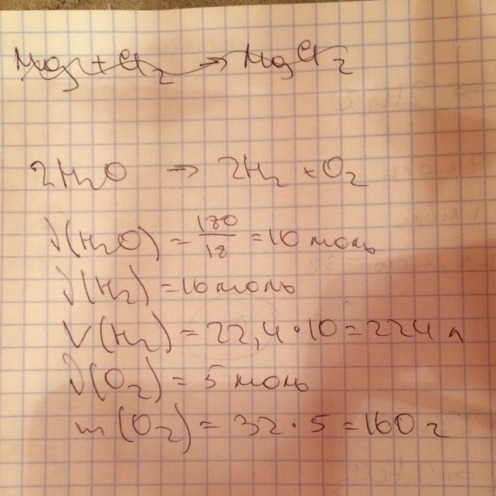 Mg + Cl₂ → MgCl₂
2H₂O → 2H₂ + O₂
ν(H₂O) = 180/18 = 10 моль
ν(H₂) = 10 моль
V(H₂) = 22,4·10 = 224 л
ν(O₂) = 5 моль
m(O₂) = 32·5 = 160 г